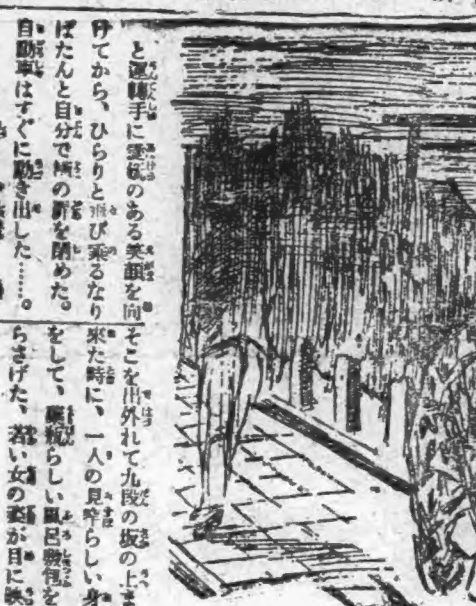 と運轉手に愛嬌のある笑顔を向
けてから、ひらりと飛び乘るなり
ぱたんと自分で横の扉を閉めた。
自動車はすぐに動き出した……。
そこを出外れて九段の坂の上ま
來た時に、一人の見窄らしい身
をして、らしい風呂敷包を
らさげた、若い女の姿が目に映